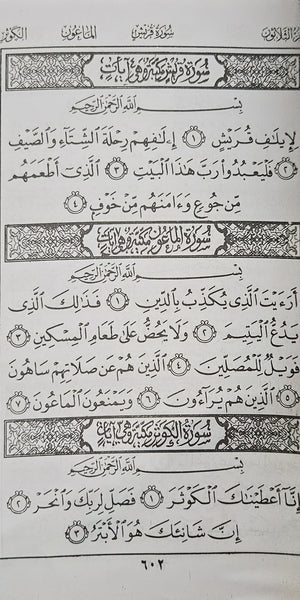 الثلاثون سورة قريش الماعون الكوثر
سورة قريش مكية وهي آيات
بِسْمِ ٱللَّهِ ٱلرَّحْمَٰنِ ٱلرَّحِيمِ
لِإِيلَٰفِ قُرَيْشٍ ۝١ إِۦلَٰفِهِمْ رِحْلَةَ ٱلشِّتَآءِ وَٱلصَّيْفِ
۝٢ فَلْيَعْبُدُوا۟ رَبَّ هَٰذَا ٱلْبَيْتِ ۝٣ ٱلَّذِىٓ أَطْعَمَهُم
مِّن جُوعٍ وَءَامَنَهُم مِّنْ خَوْفٍۭ ۝٤
سورة الماعون مكية وهي آيات
بِسْمِ ٱللَّهِ ٱلرَّحْمَٰنِ ٱلرَّحِيمِ
أَرَءَيْتَ ٱلَّذِى يُكَذِّبُ بِٱلدِّينِ ۝١ فَذَٰلِكَ ٱلَّذِى
يَدُعُّ ٱلْيَتِيمَ ۝٢ وَلَا يَحُضُّ عَلَىٰ طَعَامِ ٱلْمِسْكِينِ ۝٣
فَوَيْلٌ لِّلْمُصَلِّينَ ۝٤ ٱلَّذِينَ هُمْ عَن صَلَاتِهِمْ سَاهُونَ
۝٥ ٱلَّذِينَ هُمْ يُرَآءُونَ ۝٦ وَيَمْنَعُونَ ٱلْمَاعُونَ ۝٧
سورة الكوثر مكية وهي آيات
بِسْمِ ٱللَّهِ ٱلرَّحْمَٰنِ ٱلرَّحِيمِ
إِنَّآ أَعْطَيْنَٰكَ ٱلْكَوْثَرَ ۝١ فَصَلِّ لِرَبِّكَ وَٱنْحَرْ ۝٢
إِنَّ شَانِئَكَ هُوَ ٱلْأَبْتَرُ ۝٣
٦٠٢